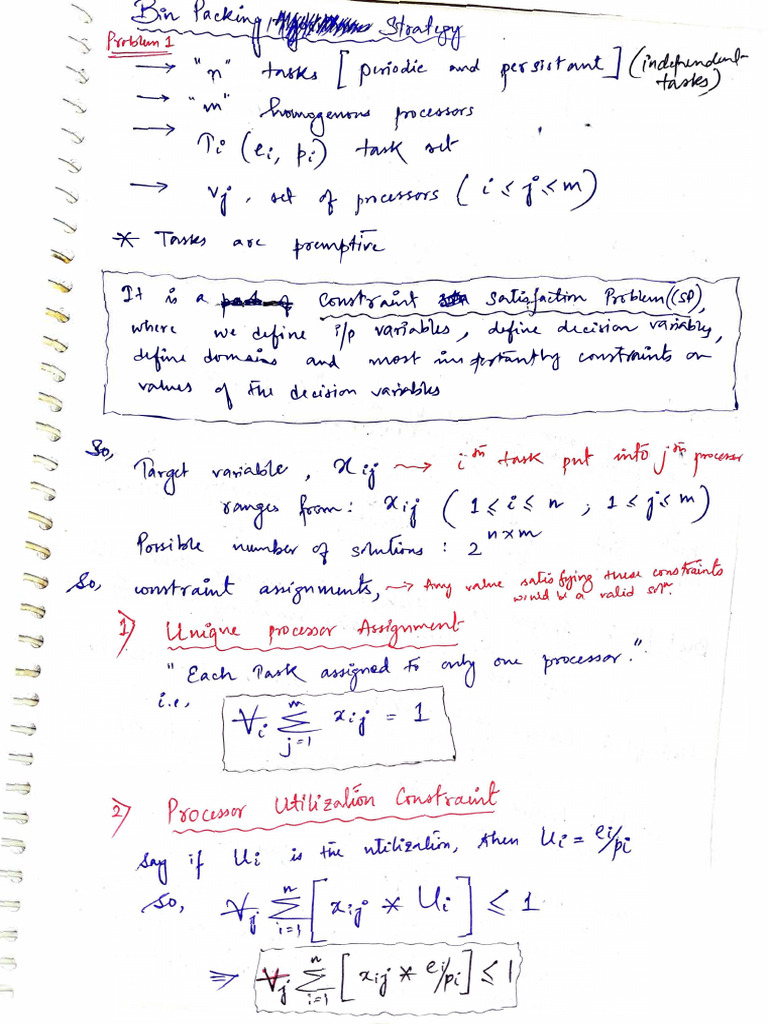 Bin Packing Strategy
Problem 1
→ "n" tasks [periodic and persistant] (independent tasks)
→ "m" homogenous processors
→ Ti (ei, pi) task set
→ Vj, set of processors (i ≤ j ≤ m)
* Tasks are premptive
It is a Constraint Satisfaction Problem (CSP),
where we define i/p variables, define decision variables,
define domains and most importantly constraints on
values of the decision variables
So,
Target variable, xij → ith task put into jth processor
ranges from: xij (1 ≤ i ≤ n ; 1 ≤ j ≤ m)
Possible number of solutions : 2^(n×m)
So, constraint assignments, → Any value satisfying these constraints
would be a valid soln.
1) Unique processor Assignment
"Each Task assigned to only one processor."
i.e,
∀i ∑_{j=1}^{m} xij = 1
2) Processor Utilization Constraint
Say if Ui is the utilization, then Ui = ei/pi
So, ∀j ∑_{i=1}^{n} [xij * Ui] ≤ 1
⇒ ∀j ∑_{i=1}^{n} [xij * ei/pi] ≤ 1